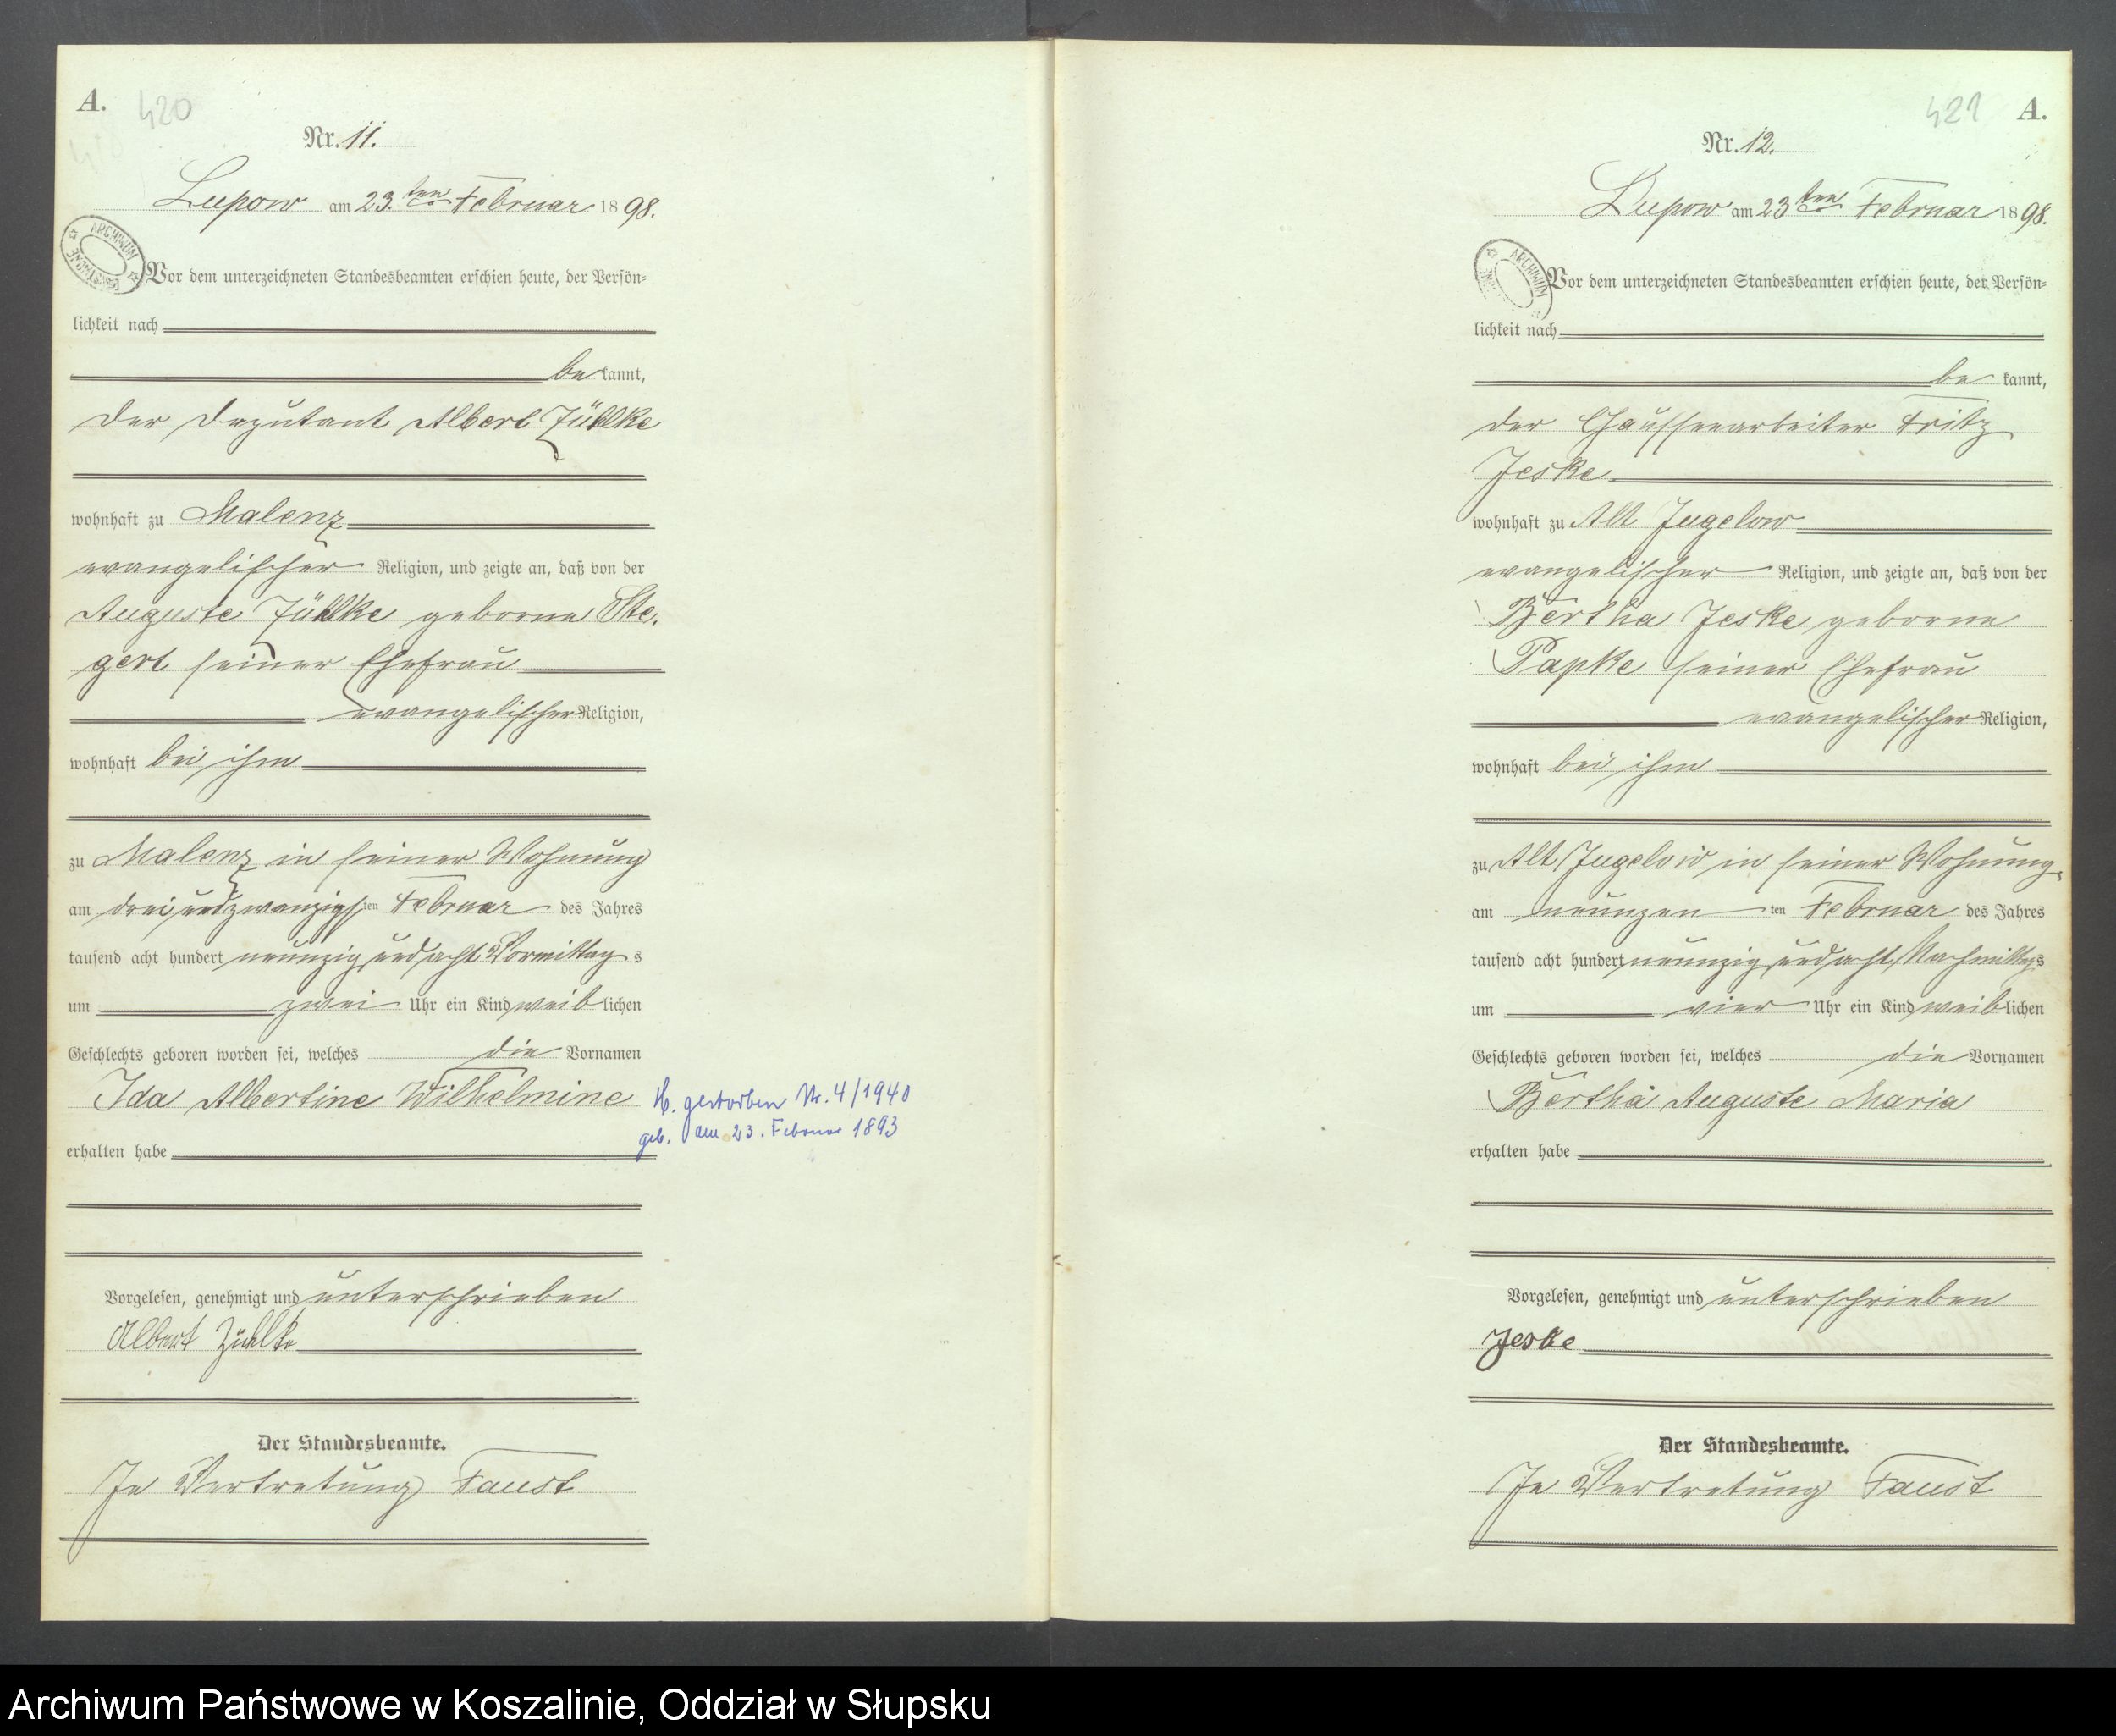 A.
420
Nr. 11.
Lupow am 23.ten Februar 1898.
ARCHIWUM
Vor dem unterzeichneten Standesbeamten erschien heute, der Persön-
lichkeit nach
be kannt,
der Deputant Albert Zühlke
wohnhaft zu Malenz
evangelischer Religion, und zeigte an, daß von der
Auguste Zühlke geborne Ste-
gert seiner Ehefrau
evangelischer Religion,
wohnhaft bei ihm
zu Malenz in seiner Wohnung
am dreiundzwanzigsten Februar des Jahres
tausend acht hundert neunzig und acht Vormittags
um zwei Uhr ein Kind weiblichen
Geschlechts geboren worden sei, welches die Vornamen
Ida Albertine Wilhelmine
H. gestorben Nr. 4/1940
geb. am 23. Februar 1893
erhalten habe
Vorgelesen, genehmigt und unterschrieben
Albert Zühlke
Der Standesbeamte.
In Vertretung Faust
421
A.
Nr. 12.
Lupow am 23ten Februar 1898.
ARCHIWUM
Vor dem unterzeichneten Standesbeamten erschien heute, der Persön-
lichkeit nach
be kannt,
der Chausseearbeiter Fritz
Jeske
wohnhaft zu Alt Jugelow
evangelischer Religion, und zeigte an, daß von der
Bertha Jeske geborne
Papke seiner Ehefrau
evangelischer Religion,
wohnhaft bei ihm
zu Alt Jugelow in seiner Wohnung
am neunzen ten Februar des Jahres
tausend acht hundert neunzig und acht Nachmittags
um vier Uhr ein Kind weiblichen
Geschlechts geboren worden sei, welches die Vornamen
Bertha Auguste Maria
erhalten habe
Vorgelesen, genehmigt und unterschrieben
Jeske
Der Standesbeamte.
In Vertretung Faust
Archiwum Państwowe w Koszalinie, Oddział w Słupsku